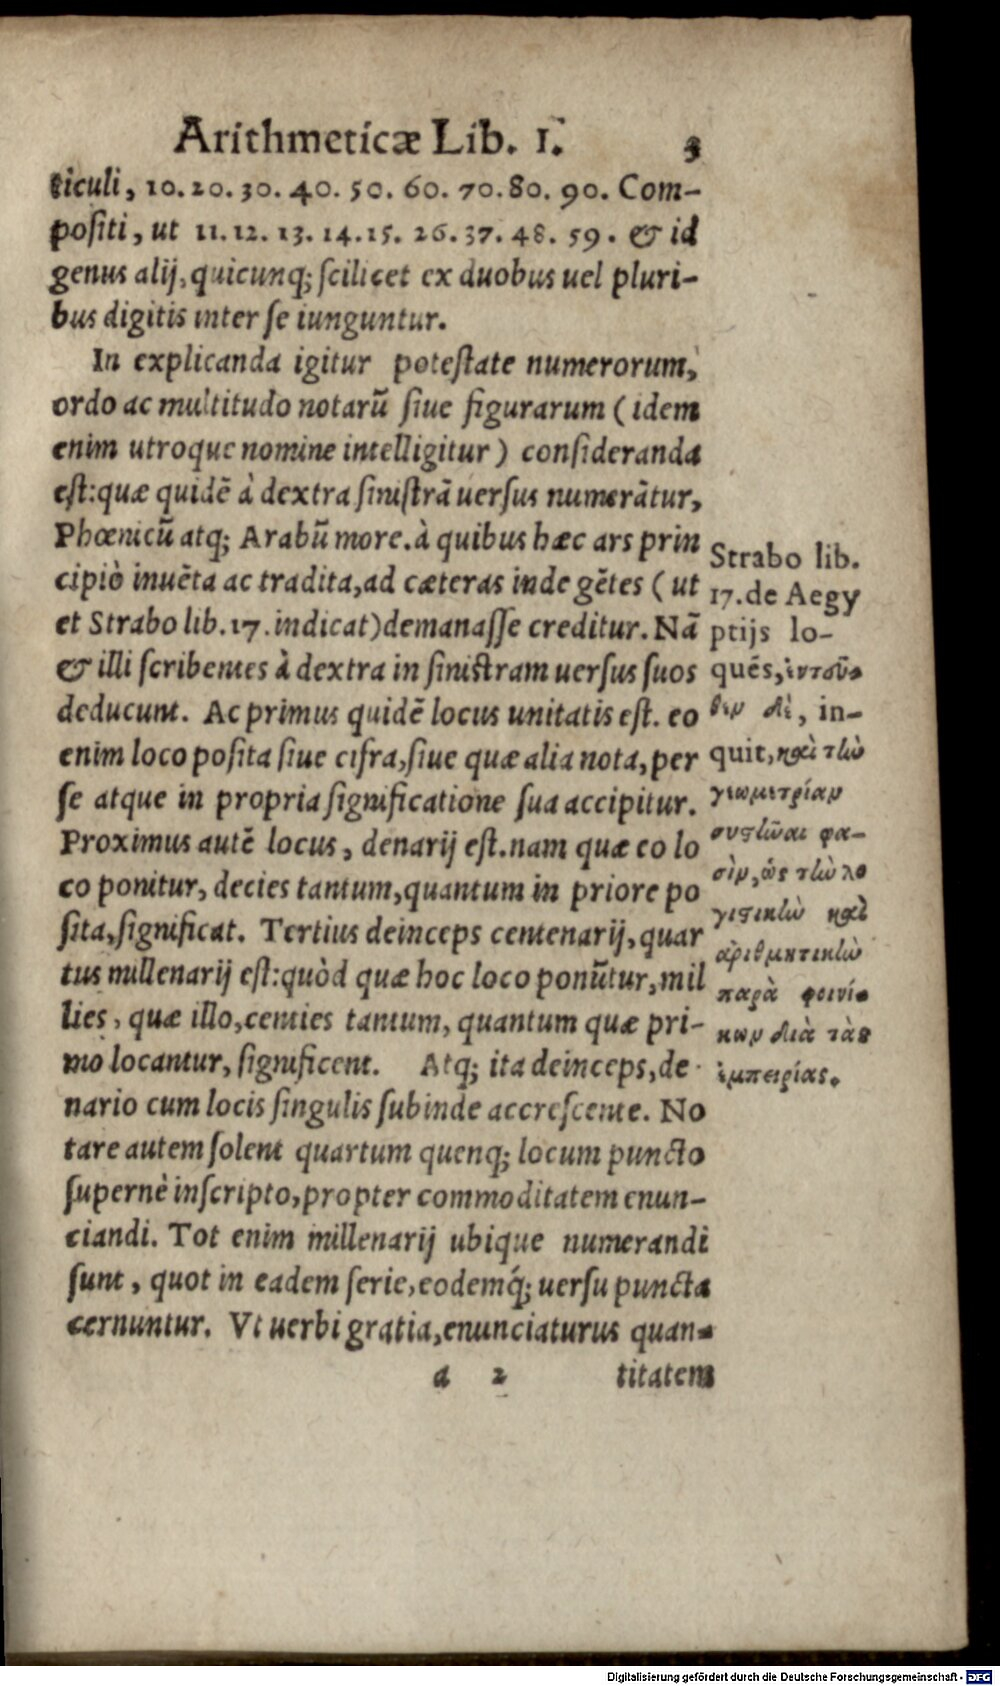 Arithmeticæ Lib. I.
3
ticuli, 10.20.30.40.50.60.70.80.90. Com-
positi, ut 11.12.13.14.15.26.37.48.59. & id
genus alij, quicunq; scilicet ex duobus uel pluri-
bus digitis inter se iunguntur.
In explicanda igitur potestate numerorum,
ordo ac multitudo notarũ siue figurarum (idem
enim utroque nomine intelligitur) consideranda
est: quæ quidẽ à dextra sinistrã uersus numerãtur,
Phœnicũ atq; Arabũ more. à quibus hæc ars prin
cipiò inuẽta ac tradita, ad cæteras inde gẽtes (ut
et Strabo lib. 17. indicat) demanasse creditur. Nã
& illi scribentes à dextra in sinistram uersus suos
deducunt. Ac primus quidẽ locus unitatis est. eo
enim loco posita siue cifra, siue quæ alia nota, per
se atque in propria significatione sua accipitur.
Proximus autẽ locus, denarij est. nam quæ eo lo
co ponitur, decies tantum, quantum in priore po
sita, significat. Tertius deinceps centenarij, quar
tus millenarij est: quòd quæ hoc loco ponũtur, mil
lies, quæ illo, centies tantum, quantum quæ pri-
mo locantur, significent. Atq; ita deinceps, de
nario cum locis singulis subinde accrescente. No
tare autem solent quartum quenq; locum puncto
supernè inscripto, propter commoditatem enun-
ciandi. Tot enim millenarij ubique numerandi
sunt, quot in eadem serie, eodemq́; uersu puncta
cernuntur. Vt uerbi gratia, enunciaturus quan-
a 2 titatem
Strabo lib.
17. de Aegy
ptijs lo-
quẽs, ἐντεῦ-
θεν δὲ, in-
quit, καὶ τὴν
γεωμετρίαν
συστῆναι φα-
σὶν, ὡς τὴν λο
γιστικὴν καὶ
ἀριθμητικὴν
παρὰ φοινί-
κων διὰ τὰς
ἐμπειρίας.
Digitalisierung gefördert durch die Deutsche Forschungsgemeinschaft - DFG